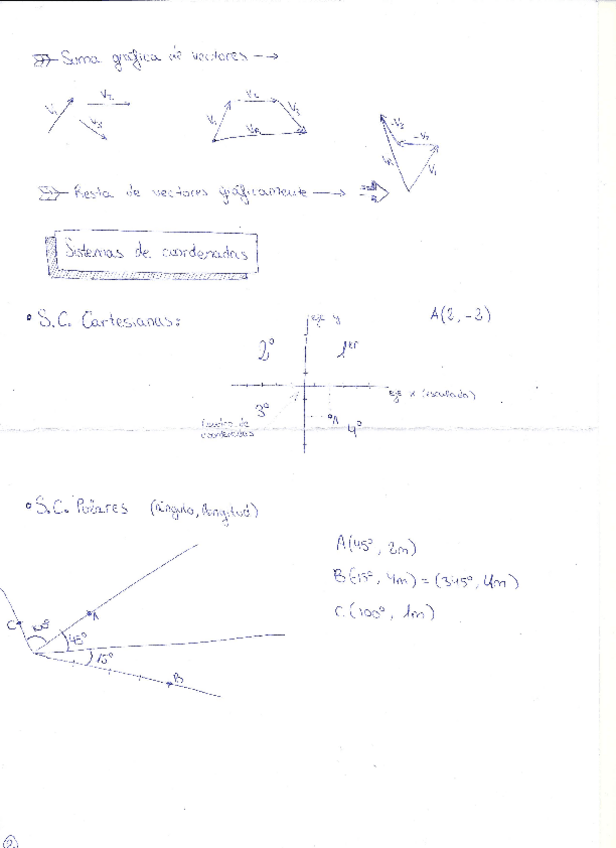 Suma gráfica de vectores →
V1 V2 V3
V1 V2 V3 VR
-V3 -V2 V1
Resta de vectores gráficamente →
Sistemas de coordenadas
• S.C. Cartesianas:
eje y
A(2, -2)
2º 1er
eje x
3º A 4º
coordenadas
• S.C. Polares (ángulo, longitud)
A(45º, 2m)
B(15º, 4m) = (345º, 4m)
C(100º, 1m)
C 100º A
45º
15º
B
2